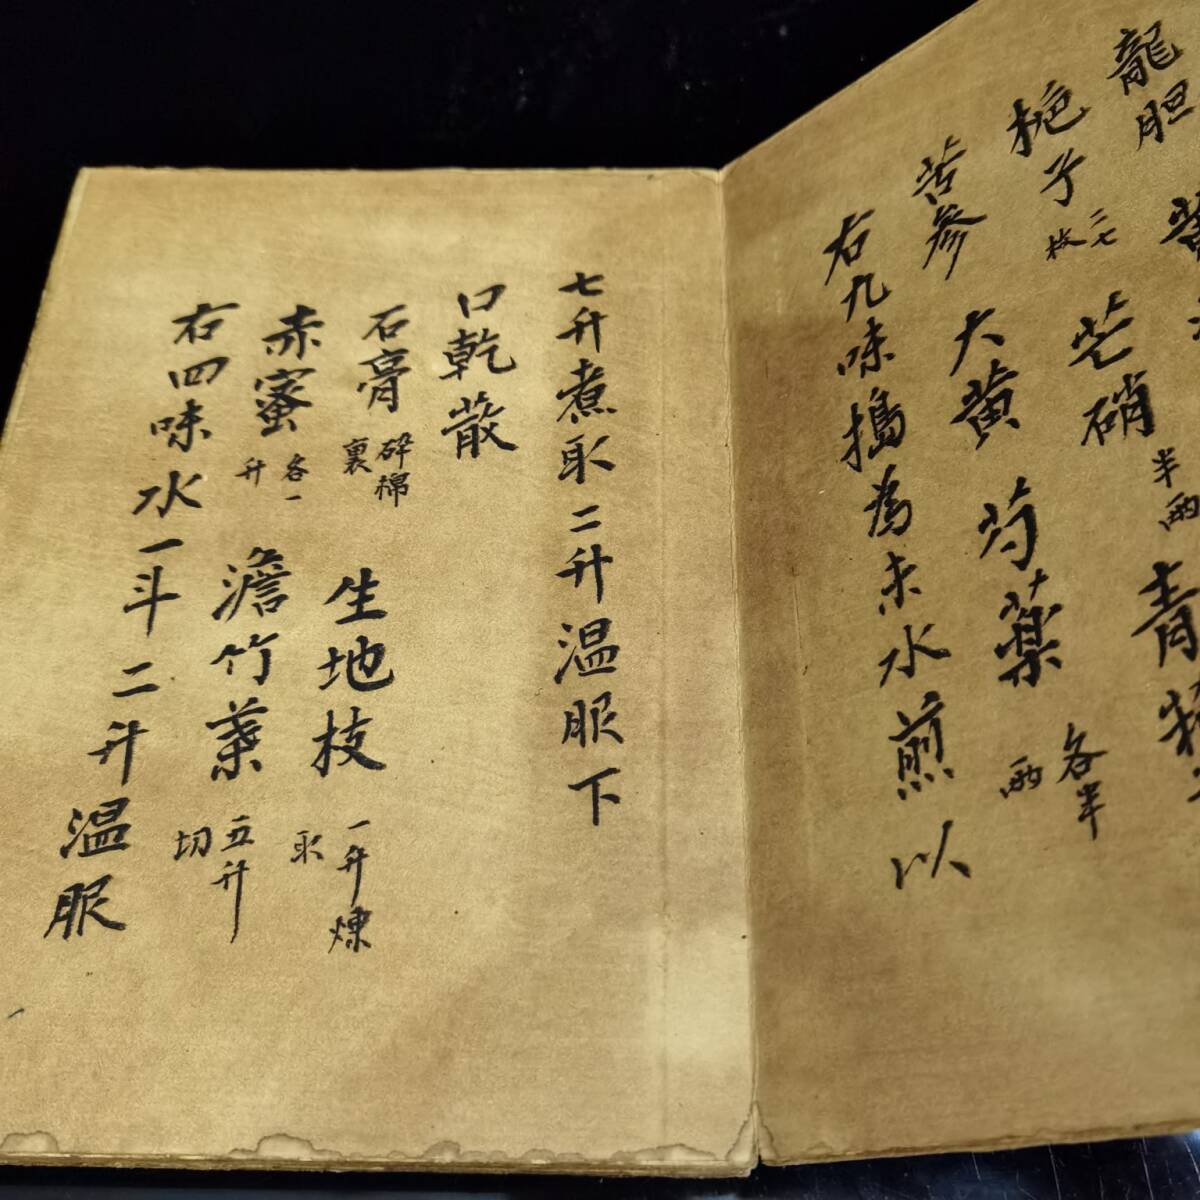 龍胆
梔子 二七枚 芒硝 半兩 青
苦參 大黄 芍薬 各半兩
右九味搗為末水煎以
七升煮取二升温服下
口乾散
石膏 碎棉裏 生地枝 一升煉取
赤蜜 各一升 澹竹葉 五升切
右四味水一斗二升温服